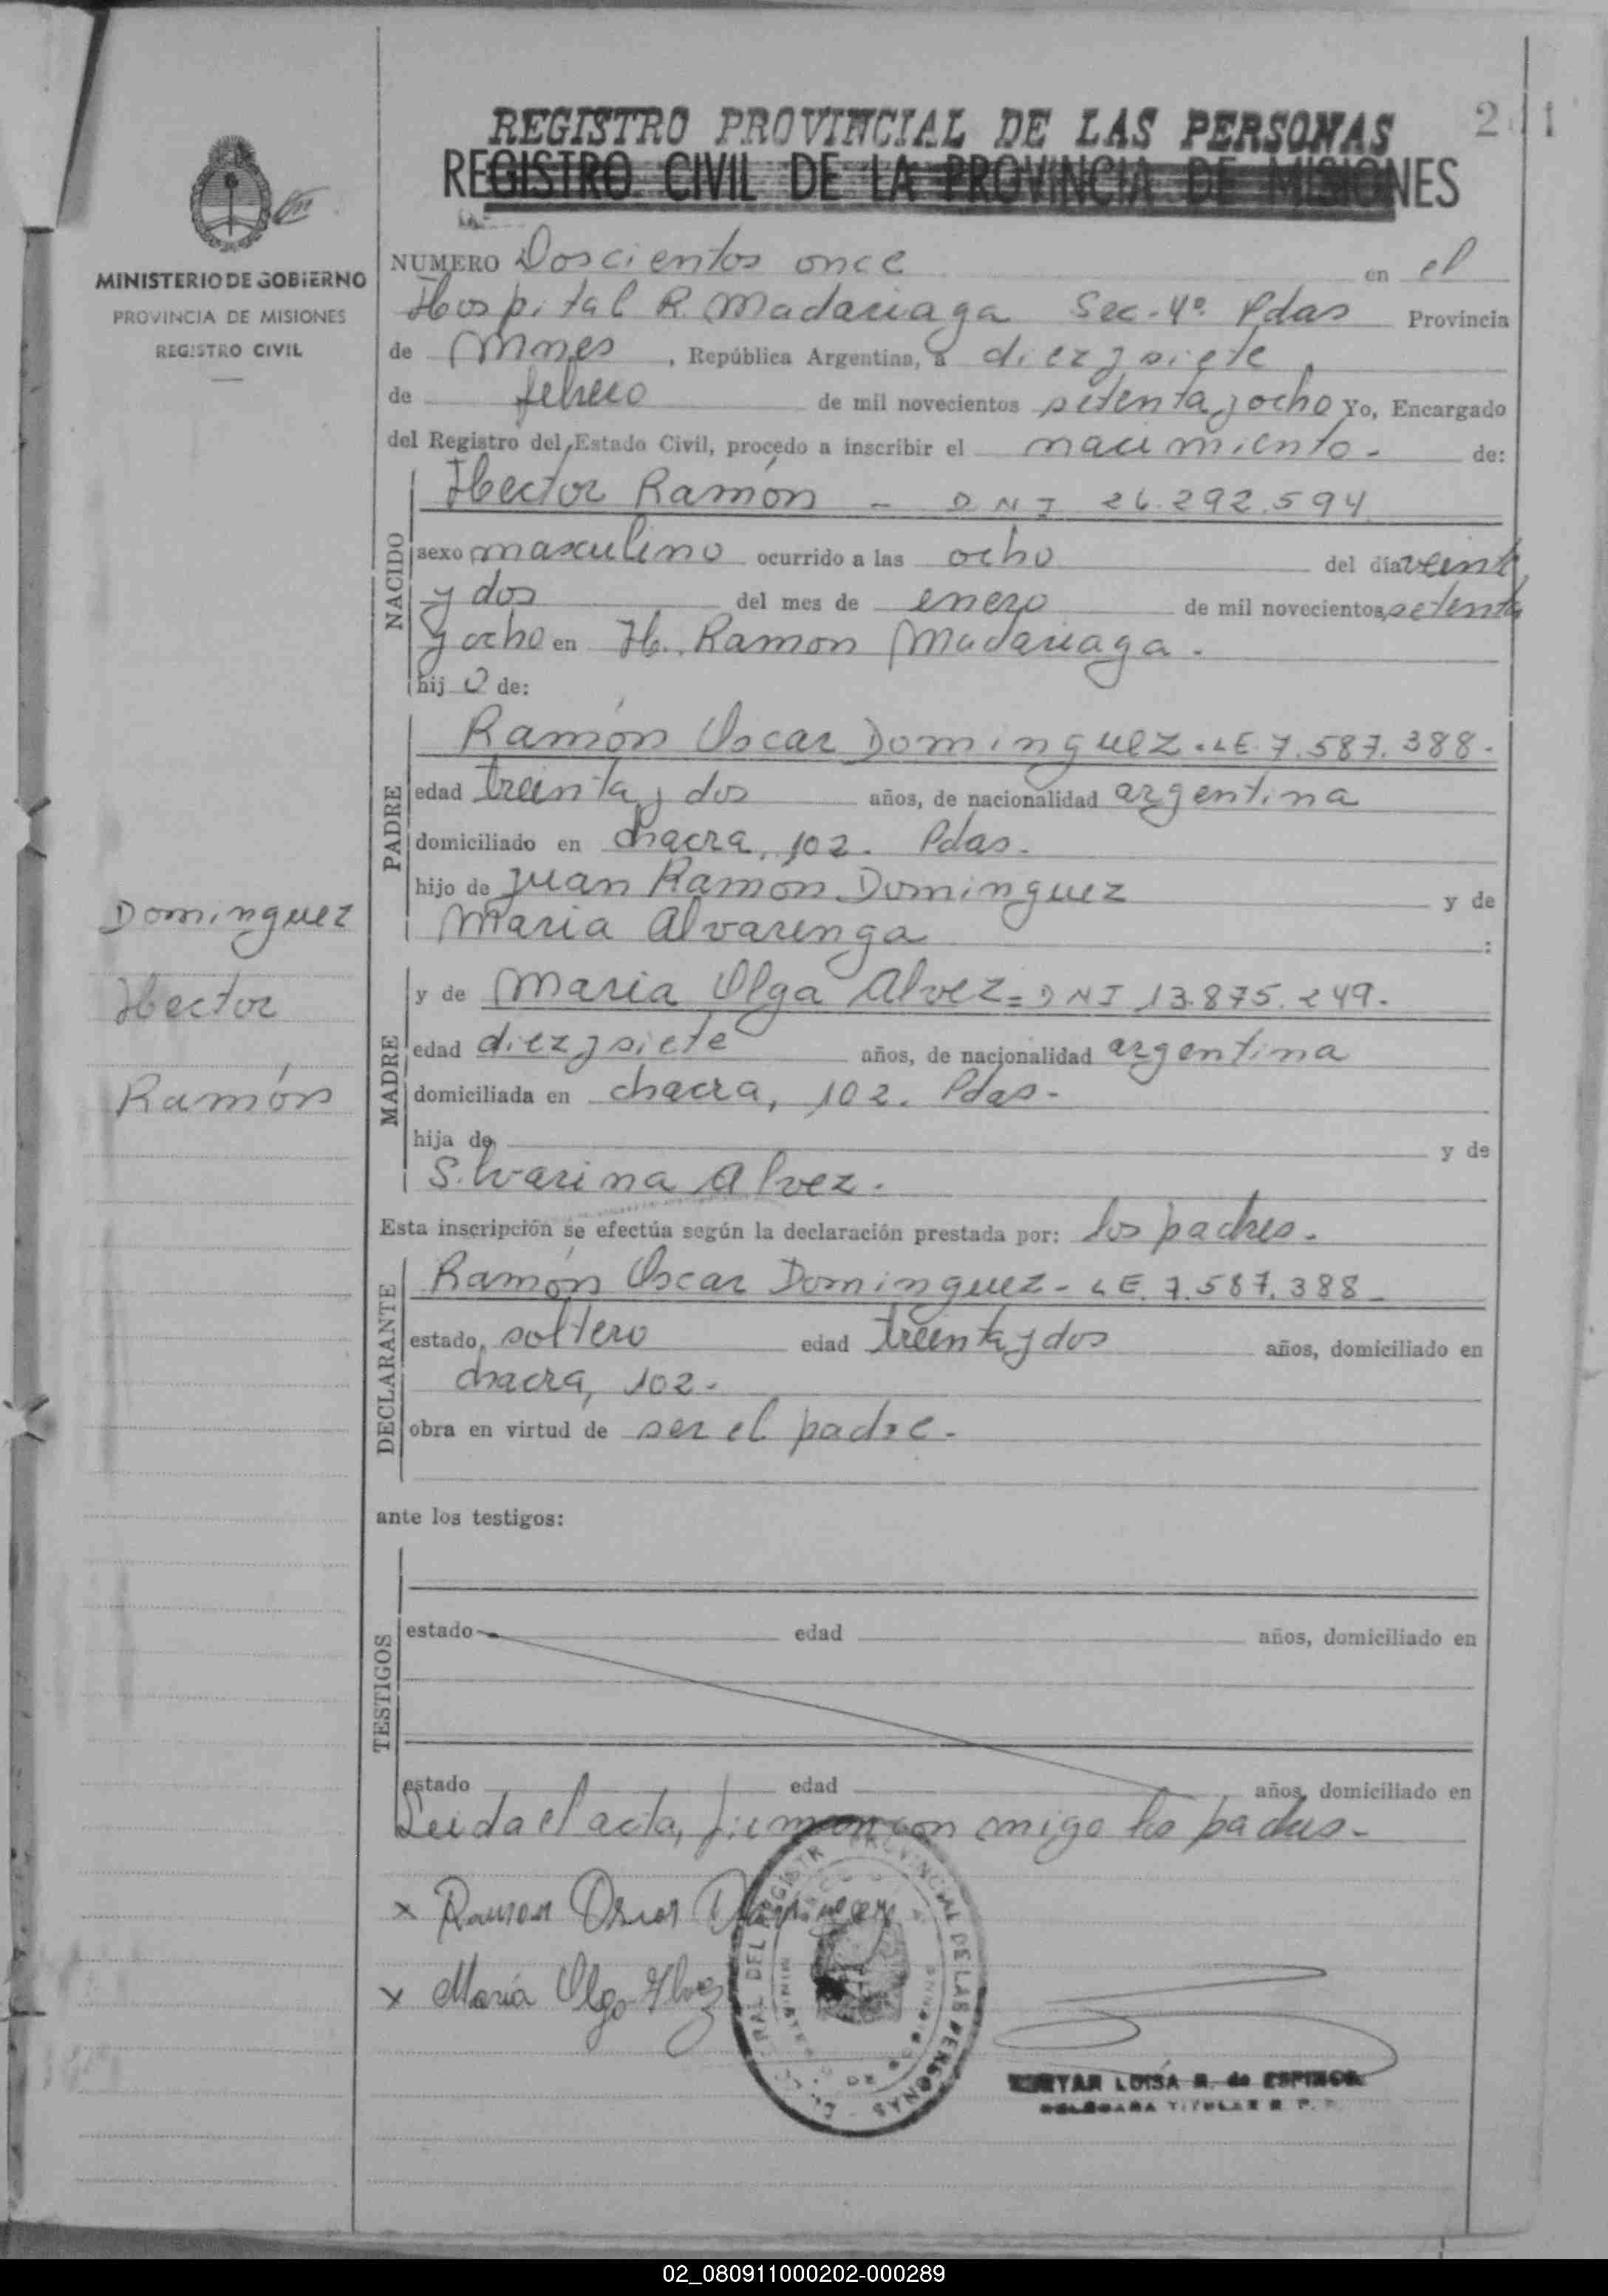 REGISTRO PROVINCIAL DE LAS PERSONAS
REGISTRO CIVIL DE LA PROVINCIA DE MISIONES
MINISTERIO DE GOBIERNO
PROVINCIA DE MISIONES
REGISTRO CIVIL
NUMERO Doscientos once en el
Hospital R. Madariaga Sec. 4º Pdas Provincia
de Mnes, República Argentina, a diez y siete
de febrero de mil novecientos setenta y ocho Yo, Encargado
del Registro del Estado Civil, procedo a inscribir el nacimiento. de:
NACIDO
Hector Ramón - DNI 26.292.594
sexo masculino ocurrido a las ocho del día veinti
y dos del mes de enero de mil novecientos setenta
y ocho en H. Ramon Madariaga.
hijo de:
PADRE
Ramón Oscar Dominguez. LE. 7.587.388.
edad treinta y dos años, de nacionalidad argentina
domiciliado en chacra, 102. Pdas.
hijo de Juan Ramón Dominguez y de
Maria Alvarenga :
MADRE
y de Maria Olga Alvez = DNI 13.875.249.
edad diez y siete años, de nacionalidad argentina
domiciliada en chacra, 102. Pdas.
hija de y de
Silvarina Alvez.
Dominguez
Hector
Ramón
Esta inscripción se efectúa según la declaración prestada por: los padres.
DECLARANTE
Ramón Oscar Dominguez - LE. 7.587.388
estado, soltero edad treinta y dos años, domiciliado en
chacra, 102.
obra en virtud de ser el padre.
ante los testigos:
TESTIGOS
estado edad años, domiciliado en
estado edad años, domiciliado en
Leida el acta, firman con migo los padres.
x Ramon Oscar Dominguez
x María Olga Alvez
LUISA R. de ESPINOSA
DELEGADA TITULAR R. P. P.
02_080911000202-000289